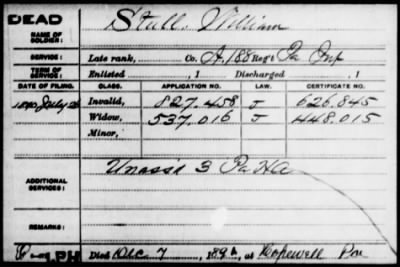 DEAD
NAME OF SOLDIER: Stull, William
SERVICE: Late rank, Co. A, 188 Reg't Pa Inf
TERM OF SERVICE: Enlisted , 1 Discharged , 1
DATE OF FILING. CLASS. APPLICATION NO. LAW. CERTIFICATE NO.
1890 July 26 Invalid, 827.458 J 626.845
Widow, 537.016 J 448.015
Minor,
ADDITIONAL SERVICES: Unass'd 3 Pa HA
REMARKS:
Died Dec. 7, 189 , at Hopewell Pa